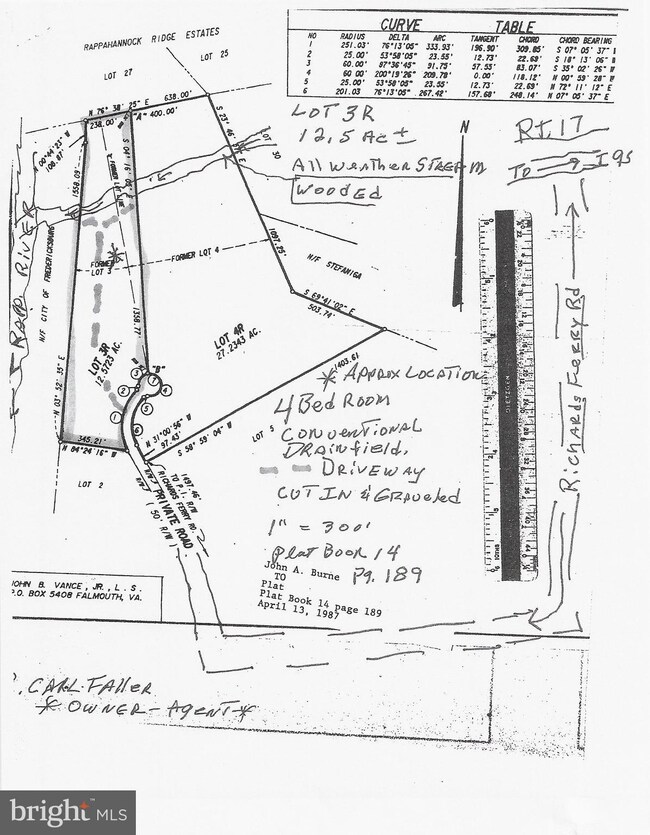 CURVE TABLE
NO RADIUS DELTA ARC TANGENT CHORD CHORD BEARING
1 251.03' 76°13'05" 333.93' 196.90' 309.85' S 07°05'37"
2 25.00' 53°58'05" 23.55' 12.73' 22.69' S 18°13'06"
3 60.00' 87°36'45" 91.75' 57.55' 83.07' S 35°02'26" W
4 60.00' 200°19'26" 209.78' 0.00' 118.12' N 00°59'28" W
5 25.00' 53°58'05" 23.55' 12.73' 22.69' N 72°11'12" E
6 201.03 76°13'05" 267.42' 157.68' 248.14' N 07°05'37" E
RAPPAHANNOCK RIDGE ESTATES
LOT 27
LOT 25
N 76° 38' 25" E 638.00'
238.00'
"A" = 400.00'
N 00°44'23" W
108.87'
S 23° 46'
LOT 30
1558.09'
FORMER LOT LINE
1097.25'
LOT 3R
12.5 Ac ±
All Weather STREAM
WOODED
N
RT. 17
TO I 95
RAPP. RIVER
N/F CITY OF FREDERICKSBURG
N 03° 52' 35" E
FORMER
LOT 3
FORMER LOT 4
N/F STEFANIGA
S 69°41'02" E
503.74'
1358.77'
LOT 3R
12.5723 AC.
LOT 4R
27.2343 AC.
"B"
1403.61
1
2
3
4
5
6
345.21'
N 84°24'16" W
N 31°00'56" W
97.43'
S 58° 59' 04" W
LOT 5
LOT 2
1497.46'
TO P.I. R/W
RICHARDS FERRY RD.
PRIVATE ROAD
50' R/W
R/W
* Approx LOCATION
4 Bed Room
CONVENTIONAL
DRAINFIELD.
DRIVEWAY
CUT IN & GRAVELED
1" = 300'
Plat Book 14
Pg. 189
John A. Burne
TO
Plat
Plat Book 14 page 189
April 13, 1987
DIETZGEN
Richards Ferry Rd
JOHN B. VANCE, JR., L. S.
P.O. BOX 5408 FALMOUTH, VA.
CARL FALLER
* OWNER - AGENT *
bright MLS